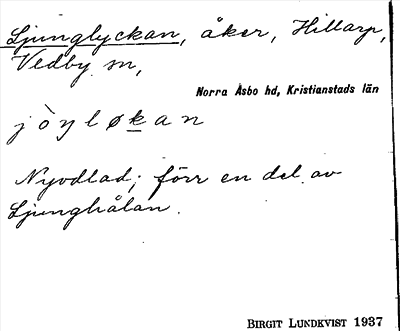 Ljunglyckan, åker, Hillarp,
Vedby sn,
Norra Åsbo hd, Kristianstads län
jòŋløkan
Nyodlad; förr en del av
Ljunghålan.
BIRGIT LUNDKVIST 1937